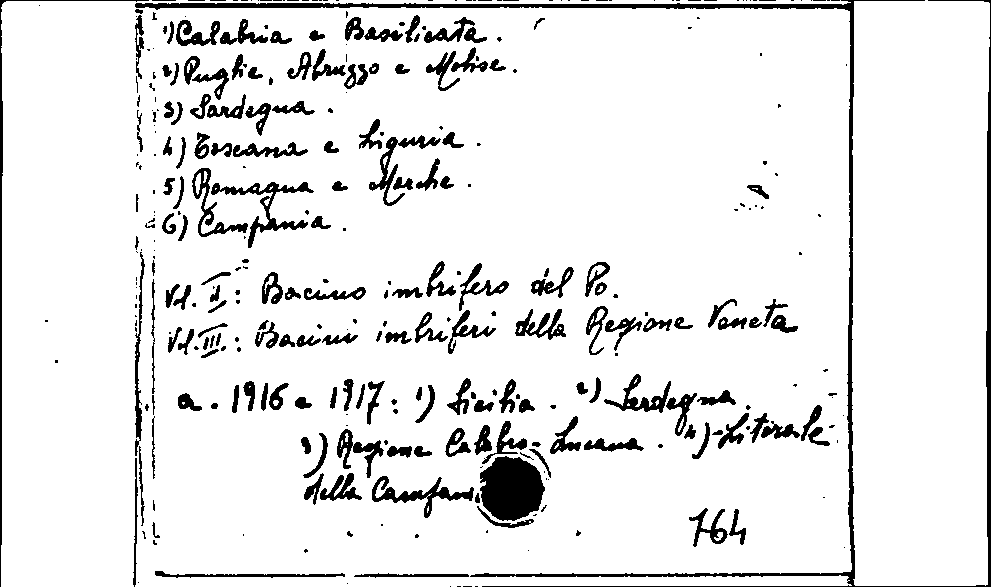 1) Calabria e Basilicata.
2) Puglie, Abruzzo e Molise.
3) Sardegna.
4) Toscana e Liguria.
5) Romagna e Marche.
6) Campania.
Vol. II: Bacino imbrifero del Po.
Vol. III: Bacini imbriferi della Regione Veneta
a. 1916 e 1917: 1) Sicilia. 2) Sardegna.
3) Regione Calabro-Lucana. 4) Litorale
della Campan
764